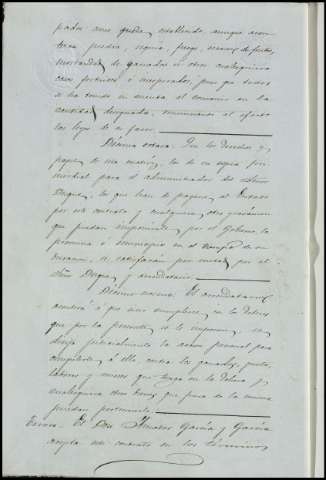 pados unos queda estallando, aunque acon-
tezca piedra, sequía, fuego, escasez de frutos,
mortandad de ganados u otros cualesquiera
casos fortuitos o inesperados, pues que todos
se ha tenido en cuenta al convenir en la
cantidad designada, renunciando al efecto
las leyes de su favor.
Décima octava. Que los derechos y
papel de esta matriz, los de su copia pri-
mordial para el administrador del Señor
Duque, lo que haya de pagarse al Estado
por este contrato y cualquiera otro gravamen
que pueda imponerse por el Gobierno, la
provincia o municipio en el tiempo de su
duracion, se satisfarán por mitad por el
Señor Duque y arrendatario.
Décimo novena. El arrendatario
vendrá o por su cumplimiento en los deberes
que por la presente se le imponen, se
dirija judicialmente la accion personal para
compelerle a ello contra los ganados, frutos,
labores y mieses que tenga en la Dehesa y
cualesquiera otros bienes que fuera de la misma
puedan pertenecerle.
Tercero. El Don Amador García y García
acepta este contrato en los términos